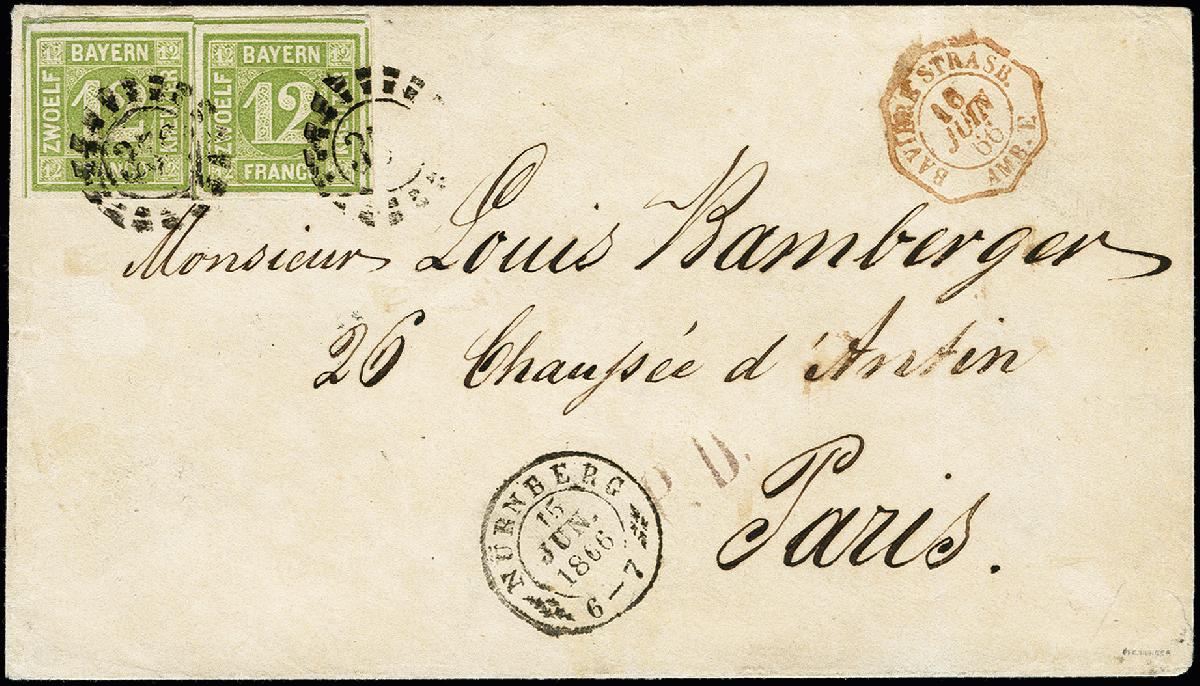 BAYERN
ZWOELF
12
BAYERN
ZWOELF
12
FRANCO
BAVIERE STRASB.
16
JUIN
66
AMB. E
Monsieur Louis Bamberger
26 Chaussée d'Antin
Paris.
P.D.
NÜRNBERG
15
JUN.
1866
6-7